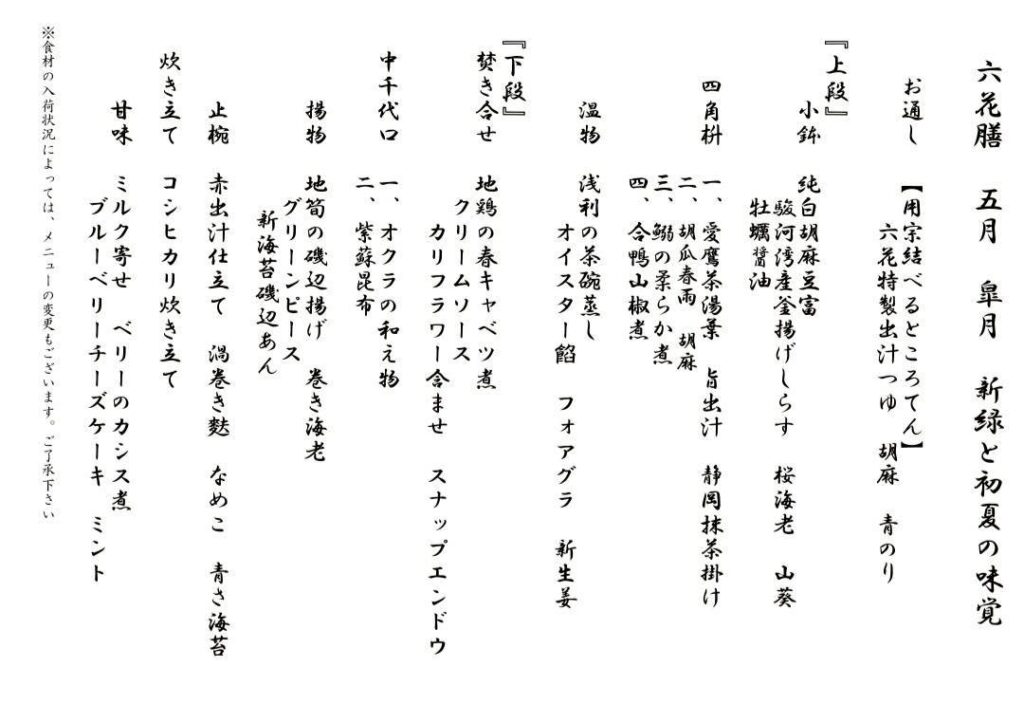 六花膳　五月　皐月　新緑と初夏の味覚
お通し　【用宗結べるところてん】
六花特製出汁つゆ　胡麻　青のり
『上段』
小鉢　純白胡麻豆富
駿河湾産釜揚げしらす　桜海老　山葵
牡蠣醤油
四角枡　一、愛鷹茶湯葉　旨出汁　静岡抹茶掛け
二、胡瓜春雨　胡麻
三、鰯の柔らか煮
四、合鴨山椒煮
温物　浅利の茶碗蒸し
オイスター餡　フォアグラ　新生姜
『下段』
焚き合せ　地鶏の春キャベツ煮
クリームソース
カリフラワー含ませ　スナップエンドウ
中千代口　一、オクラの和え物
二、紫蘇昆布
揚物　地筍の磯辺揚げ　巻き海老
グリーンピース
新海苔磯辺あん
止椀　赤出汁仕立て　渦巻き麩　なめこ　青さ海苔
炊き立て　コシヒカリ炊き立て
甘味　ミルク寄せ　ベリーのカシス煮
ブルーベリーチーズケーキ　ミント
※食材の入荷状況によっては、メニューの変更もございます。ご了承下さい